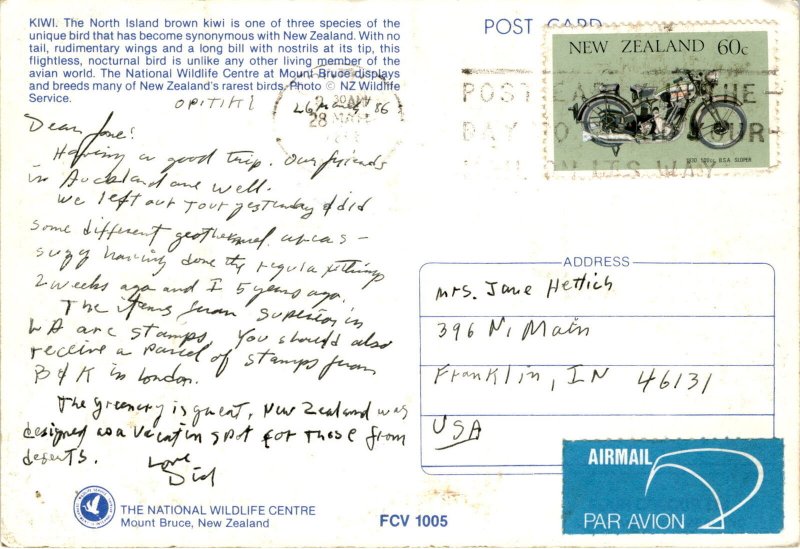 KIWI. The North Island brown kiwi is one of three species of the
unique bird that has become synonymous with New Zealand. With no
tail, rudimentary wings and a long bill with nostrils at its tip, this
flightless, nocturnal bird is unlike any other living member of the
avian world. The National Wildlife Centre at Mount Bruce displays
and breeds many of New Zealand's rarest birds. Photo © NZ Wildlife
Service.
OPITIKI 26 March 86
Dear Jane:
Having a good trip. Our friends
in Auckland are well.
We left our tour yesterday & did
some different geothermal areas -
having done the regular things
2 weeks ago and I 5 years ago.
The items from Superior in
LA are stamps. You should also
receive a parcel of stamps from
B & K in London.
The greenery is great, New Zealand was
designed as a vacation spot for those from
deserts.
Love
Sid
THE NATIONAL WILDLIFE CENTRE
Mount Bruce, New Zealand
FCV 1005
POST CARD
NEW ZEALAND 60c
1930 500cc B.S.A. SLOPER
28 MAR
POST EA THE
DAY YOUR
ON ITS WAY
ADDRESS
Mrs. Jane Hettich
396 N. Main
Franklin, IN 46131
USA
AIRMAIL
PAR AVION